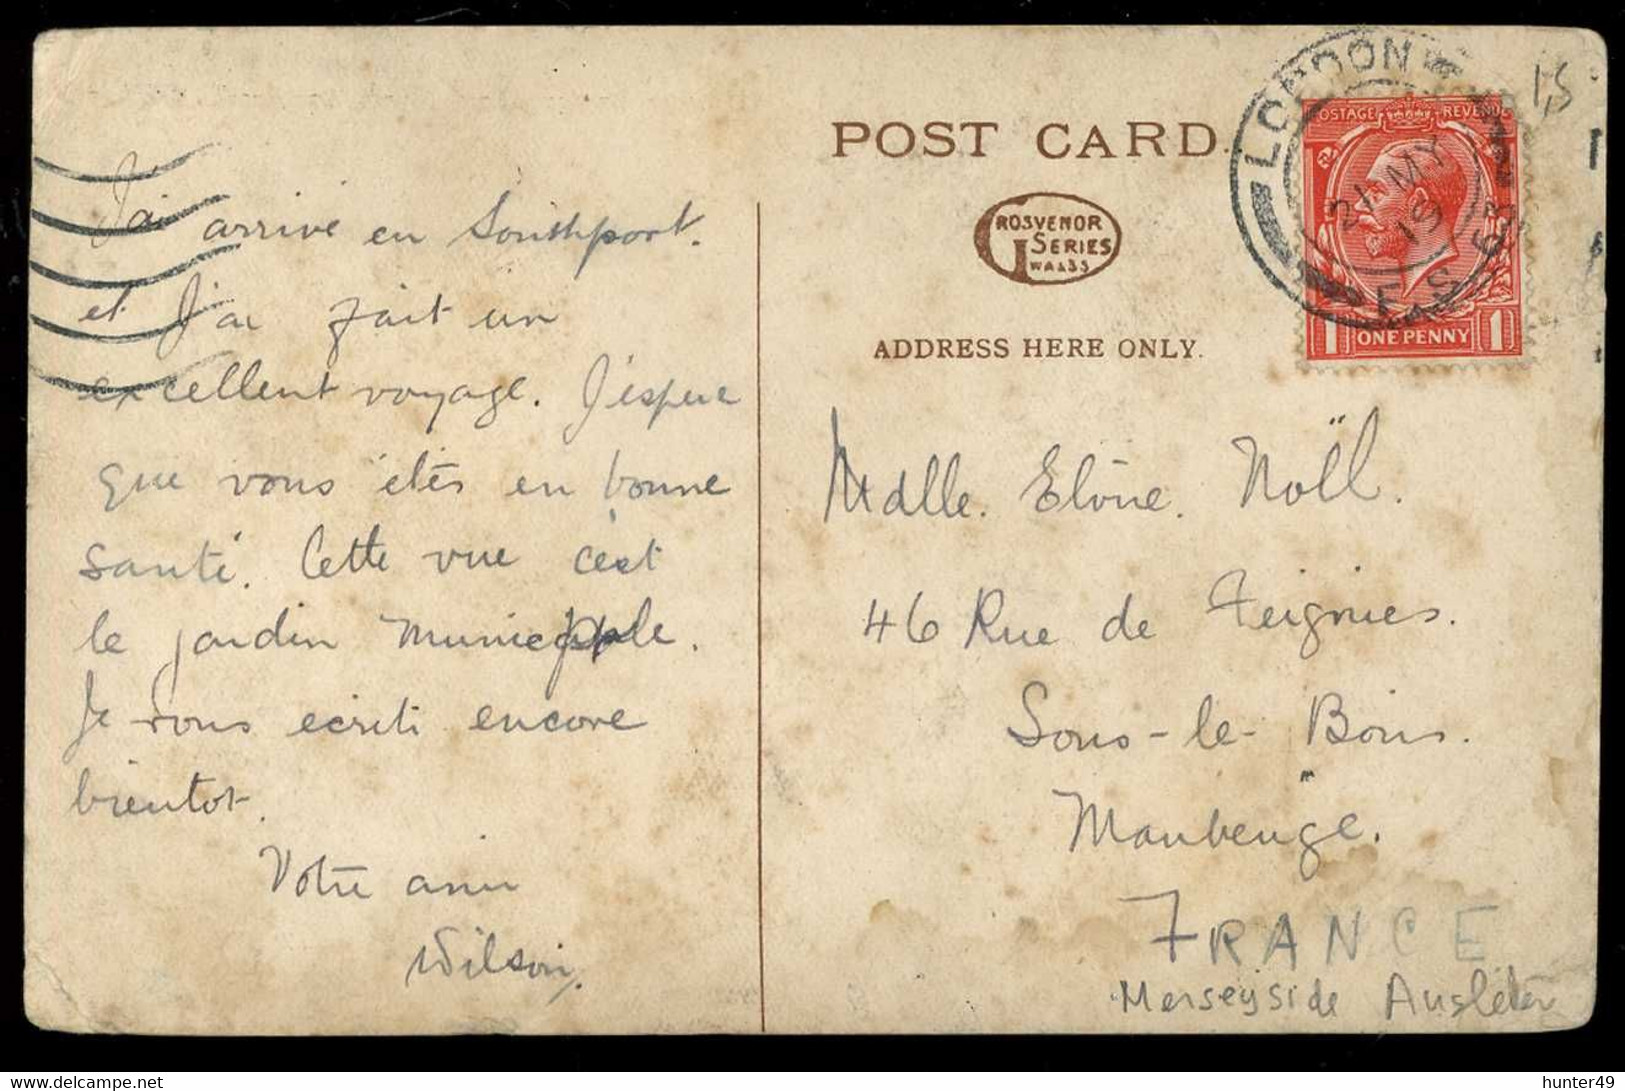 J'ai arrivé en Southport.
et J'ai fait un
excellent voyage. J'espere
que vous étés en bonne
santé. Cette vue c'est
le jardin Municipale.
Je vous écrit encore
bientot.
Votre ami
Wilson.
POST CARD.
GROSVENOR
SERIES
ADDRESS HERE ONLY.
LONDON
21 MY
19
F.S.
POSTAGE REVENUE
1 ONE PENNY 1
1,5
Madlle. Noëll.
46 Rue de Feignies.
Sous-le-Bois.
Maubeuge.
FRANCE
Merseyside
delcampe.net
hunter49